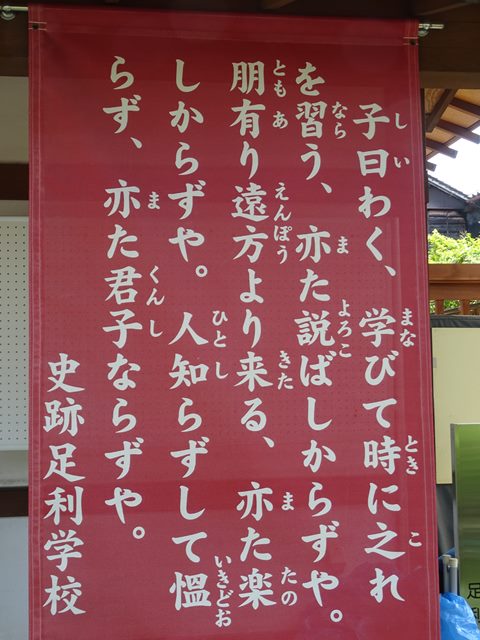 しい まな とき こ
子曰わく、学びて時に之れ
なら ま よろこ
を習う、亦た説ばしからずや。
とも あ えんぽう きた ま たの
朋有り遠方より来る、亦た楽
ひとし いきどお
しからずや。人知らずして慍
ま くんし
らず、亦た君子ならずや。
史跡足利学校